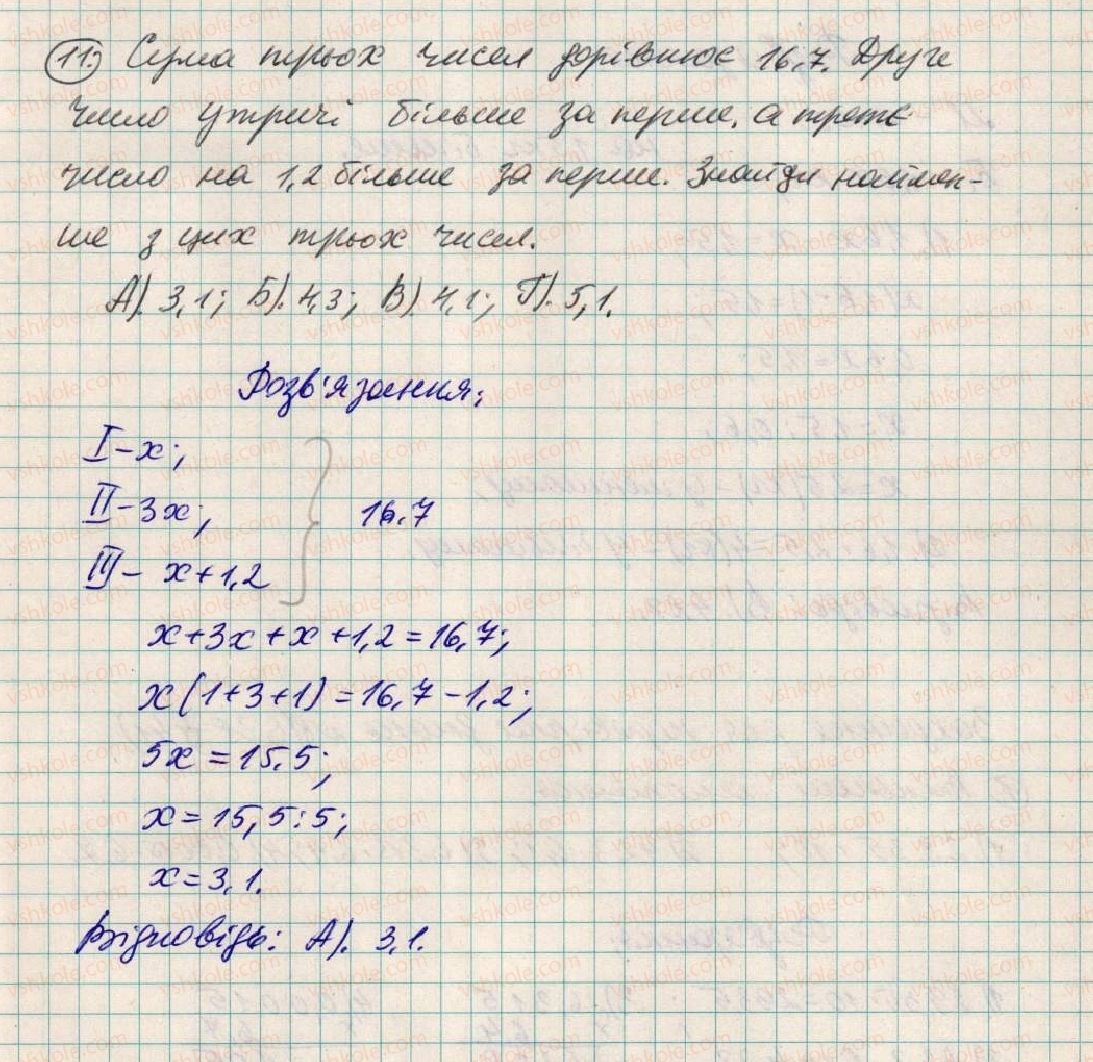 11. Сума трьох чисел дорівнює 16,7. Друге
число утричі більше за перше, а третє
число на 1,2 більше за перше. Знайди наймен-
ше з цих трьох чисел.
А). 3,1; Б). 4,3; В) 4,1; Г). 5,1.
Розв'язання:
I - x;
II - 3x;
16,7
III - x + 1,2
x + 3x + x + 1,2 = 16,7;
x (1 + 3 + 1) = 16,7 - 1,2;
5x = 15,5;
x = 15,5 : 5;
x = 3,1.
Відповідь: А). 3,1.